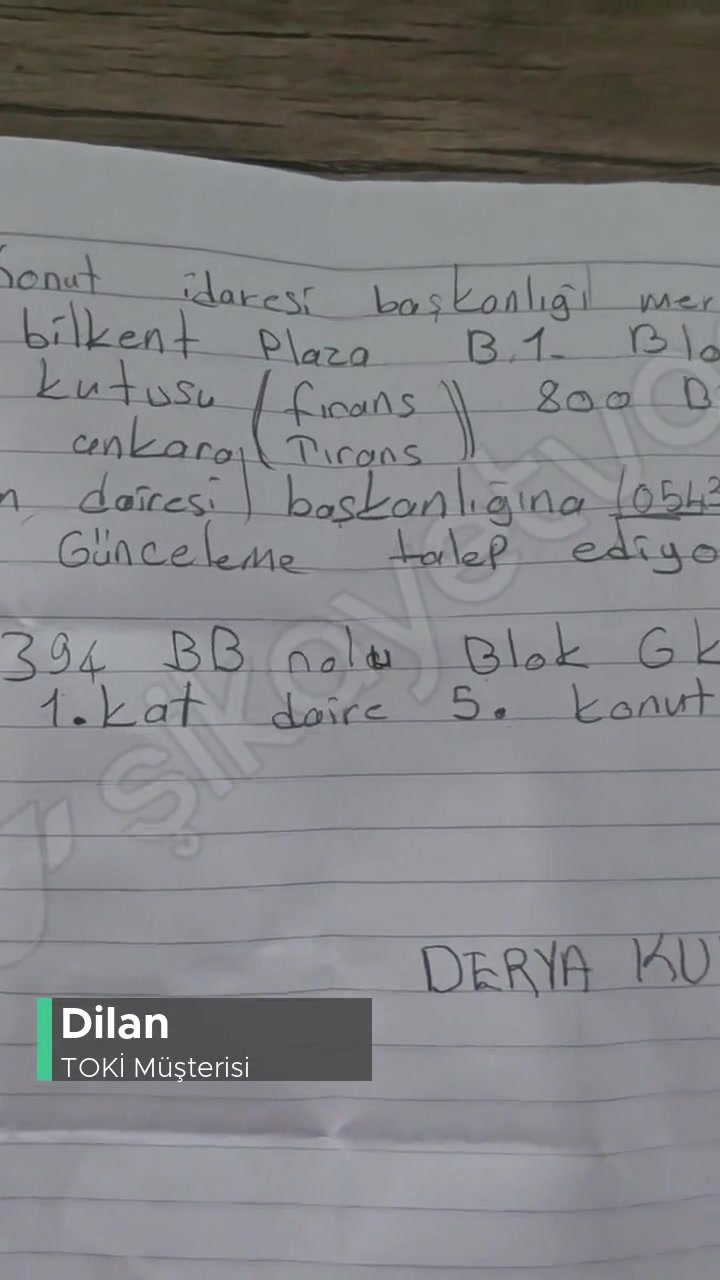 Konut idaresi başkanlığı mer
bilkent Plaza B.1. Blo
kutusu (fınans)) 800 B
ankara (Tırans
n dairesi) başkanlığına (0543
Günceleme talep ediyo
394 BB nolu Blok GK
1. kat daire 5. konut
şikayetvar
DERYA KU
Dilan
TOKİ Müşterisi